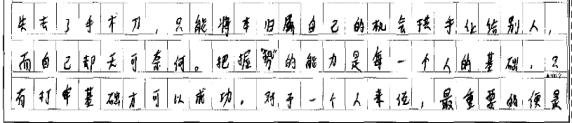 失去了手术刀，只能将本归属自己的机会拱手让给别人，
而自己却无可奈何。把握“势”的能力是每一个人的基础，只
有打牢基础方可以成功。对于一个人来说，最重要的便是